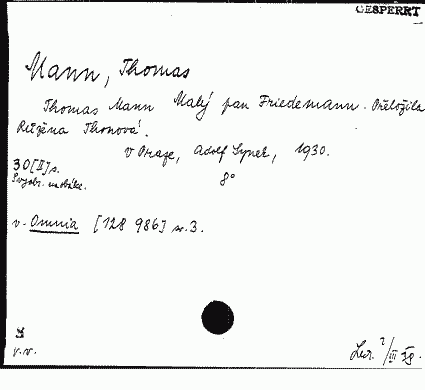 GESPERRT
Mann, Thomas
Thomas Mann Malý pan Friedemann. Přeložila
Růžena Thonová.
v Praze, Adolf Synek, 1930.
30[II]s. 8°
S vyobr. na obálce.
v- Omnia [128 986] sv. 3.
v.v.